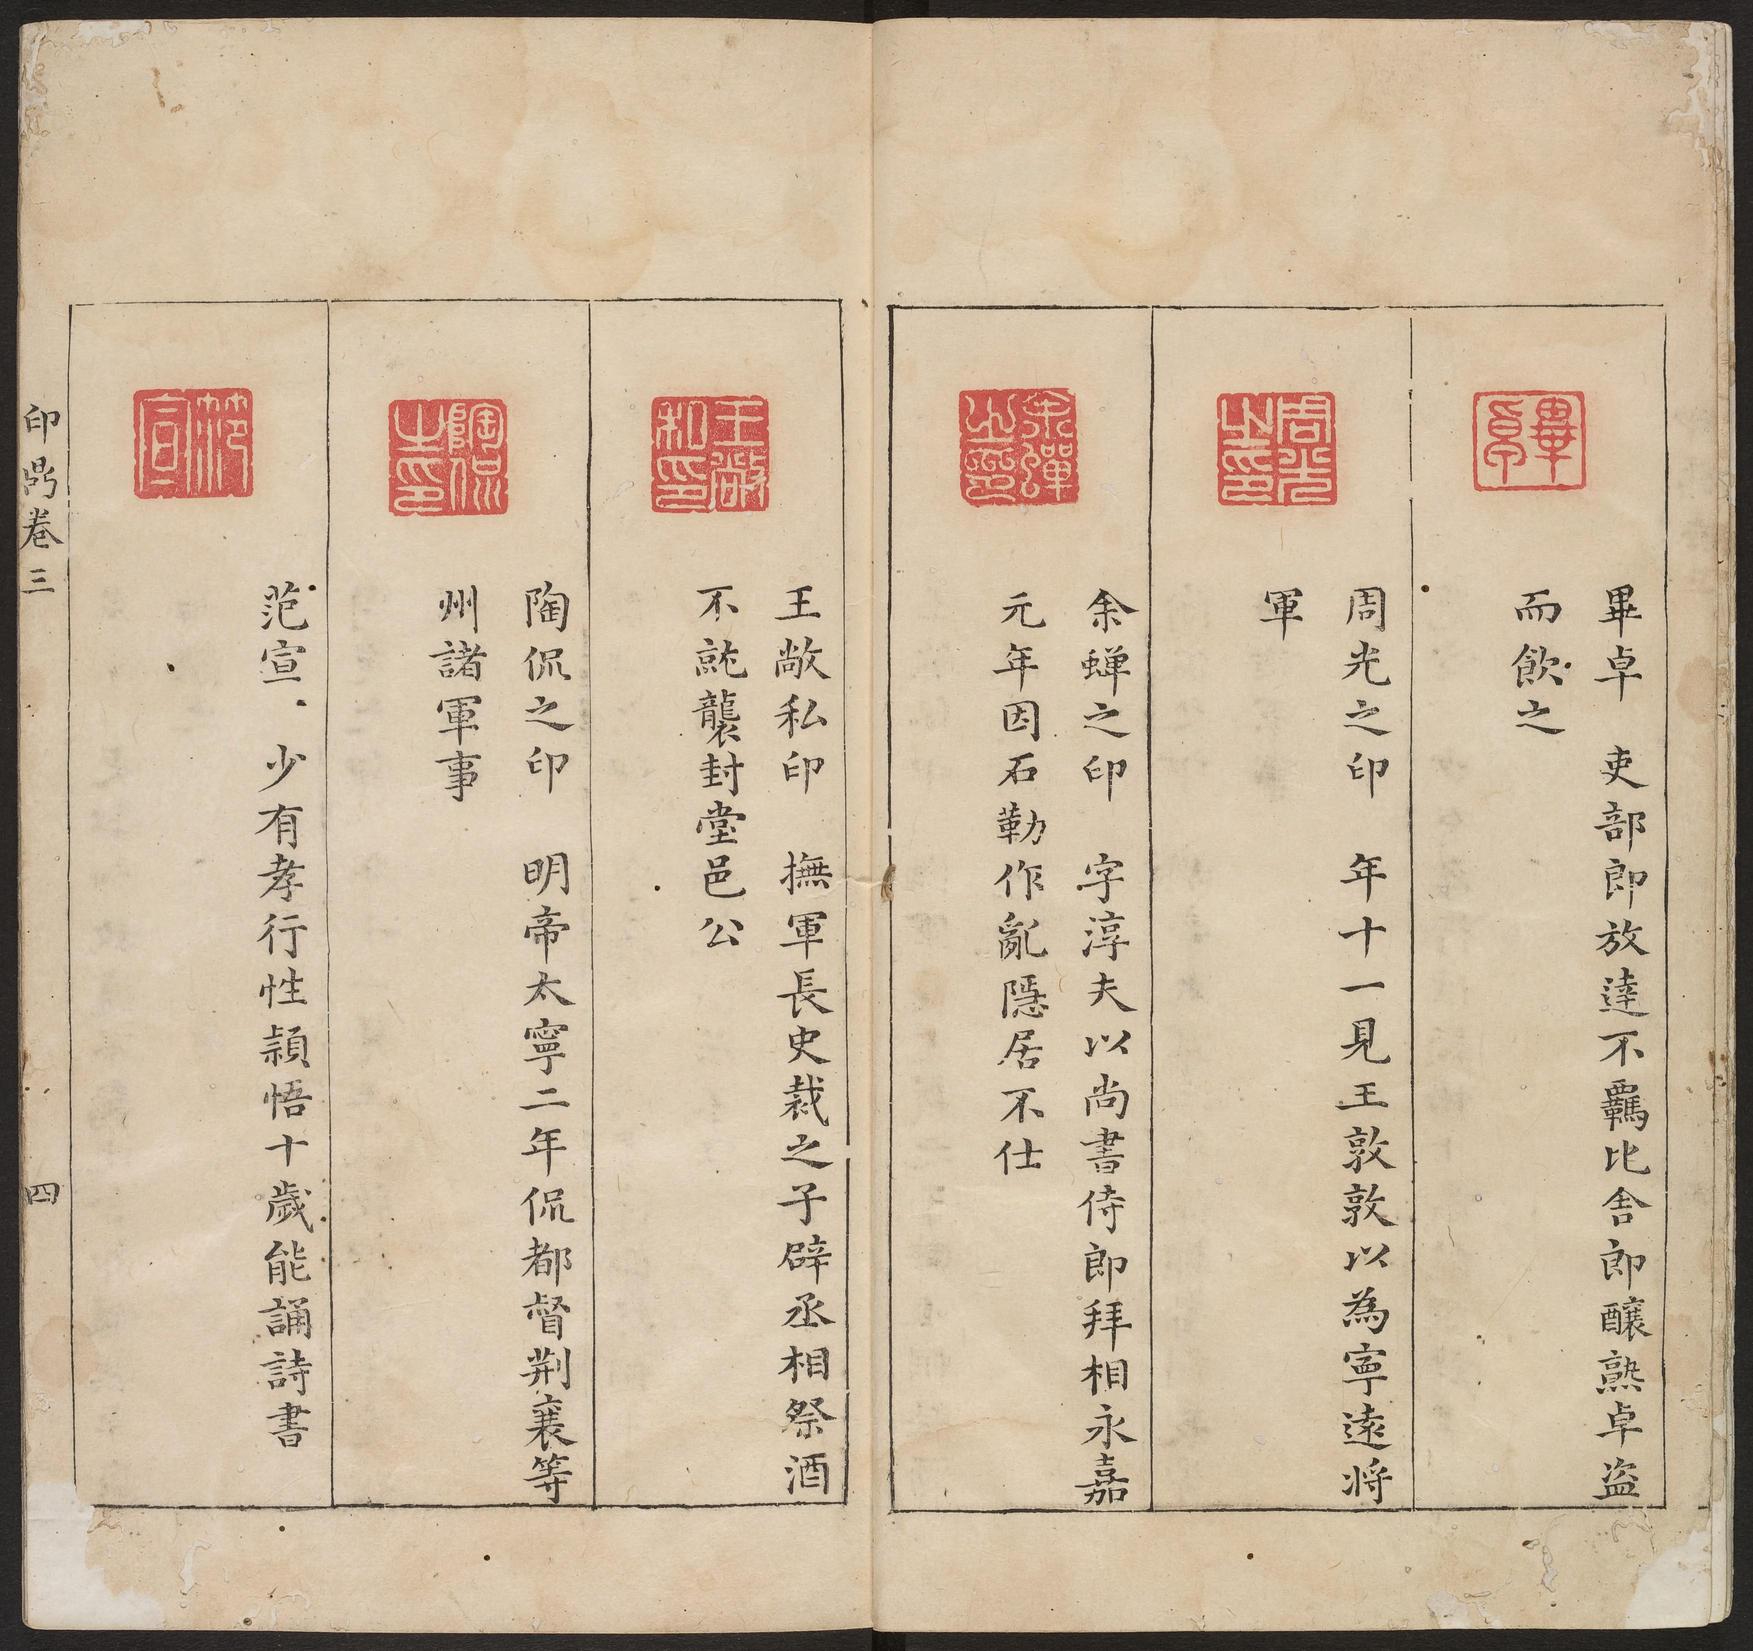 畢卓　吏部郎放達不羈比舍郎釀熟卓盜
而飲之
周光之印　年十一見王敦敦以為寧遠將
軍
余蟬之印　字淳夫以尚書侍郎拜相永嘉
元年因石勒作亂隱居不仕
王敞私印　撫軍長史裁之子辟丞相祭酒
不就襲封堂邑公
陶侃之印　明帝太寧二年侃都督荆襄等
州諸軍事
范宣　少有孝行性頴悟十歲能誦詩書
印鼎卷三　四
畢卓
周光之印
余蟬之印
王敞私印
陶侃之印
范宣